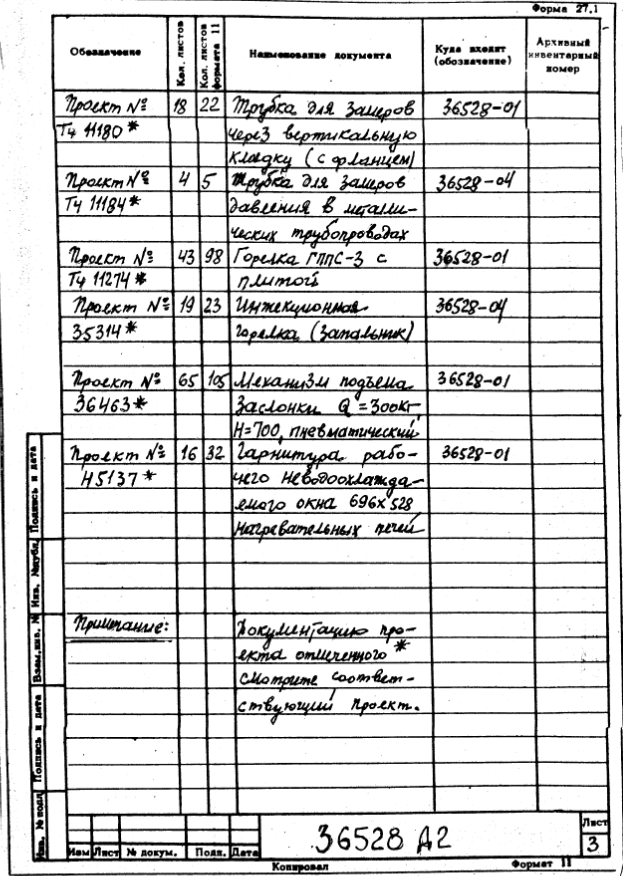 Форма 27.1
Обозначение Кол. листов Кол. листов формата 11 Наименование документа Куда входит (обозначение) Архивный инвентарный номер
Проект № 18 22 Трубка для замеров 36528-01
Тч 11180* через вертикальную
кладку (с фланцем)
Проект № 4 5 Трубка для замеров 36528-04
Тч 11184* давления в металли-
ческих трубопроводах
Проект № 43 98 Горелка ГППС-3 с 36528-01
Тч 11274* плитой
Проект № 19 23 Инжекционная 36528-04
35314* горелка (запальник)
Проект № 65 105 Механизм подъема 36528-01
36463* заслонки Q=300кг,
H=700, пневматический
Проект № 16 32 Гарнитура рабо- 36528-01
Н5137* чего неводоохлажда-
емого окна 696х528
нагревательных печей
Примечание: Документацию про-
екта отмеченного *
смотрите соответ-
ствующий проект.
Инв. № подл. Подпись и дата Взам.инв. № Инв. №дубл. Подпись и дата
Изм Лист № докум. Подп. Дата
36528 Д2
Лист
3
Копировал Формат 11